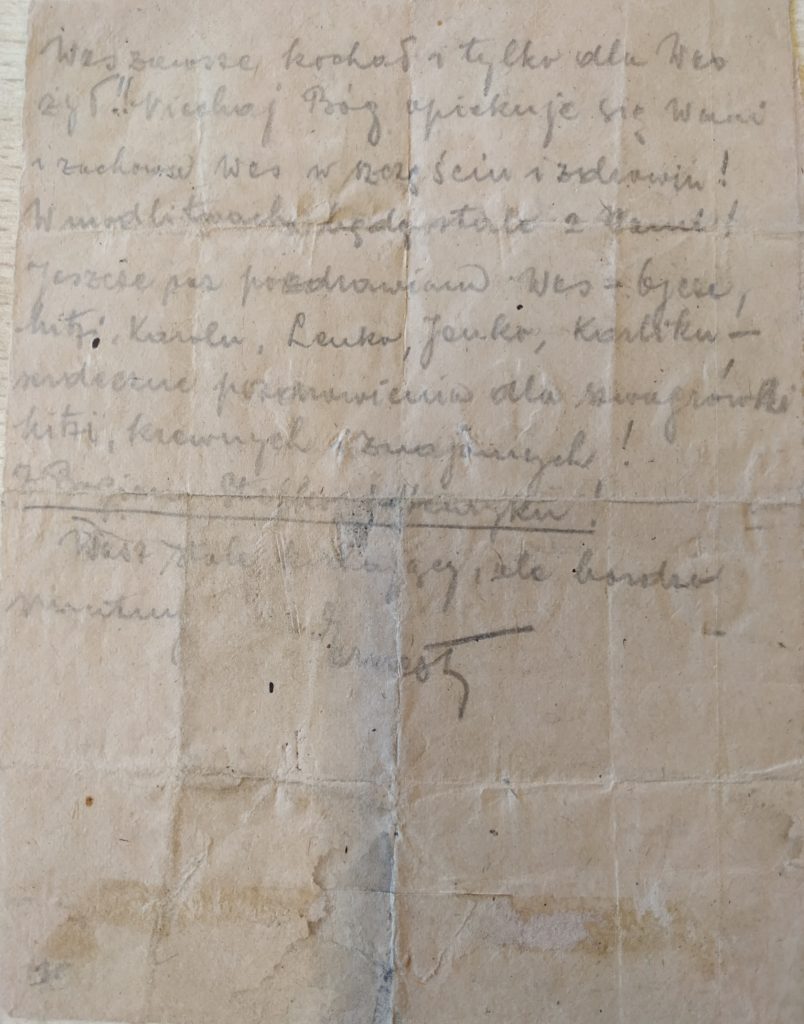 Was zawsze kochał i tylko dla Was
żył!! Niechaj Bóg opiekuje się Wami
i zachowa Was w szczęściu i zdrowiu!
W modlitwach będę stale z Wami!
Jeszcze raz pozdrawiam Was –
Karolu, Lenko, Jenko, Karliku –
serdeczne pozdrowienia dla szwagrówki
krewnych i znajomych!
Z Bogiem
Wasz stale kochający, ale bardzo
smutny
Ernest